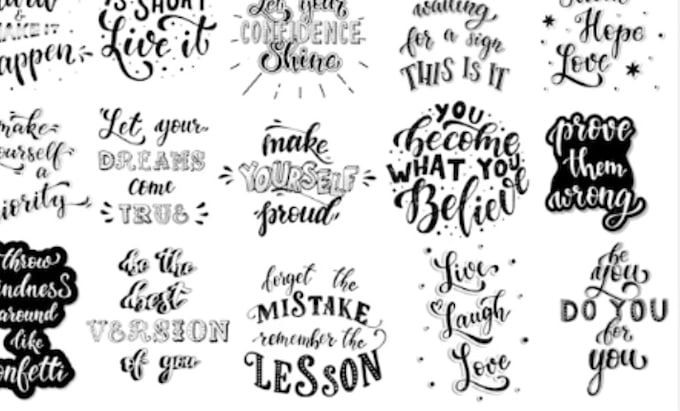 MAKE IT
happen
IS SHORT
Live it
Let your
CONFIDENCE
Shine
waiting
for a sign
THIS IS IT
Hope
Love
make
yourself
a
priority
Let your
DREAMS
come
TRUE
make
YOURSELF
proud
YOU
become
WHAT YOU
Believe
prove
them
wrong
throw
kindness
around
like
confetti
be the
best
VERSION
of you
forget the
MISTAKE
remember the
LESSON
Live
Laugh
Love
be
you
DO YOU
for
you